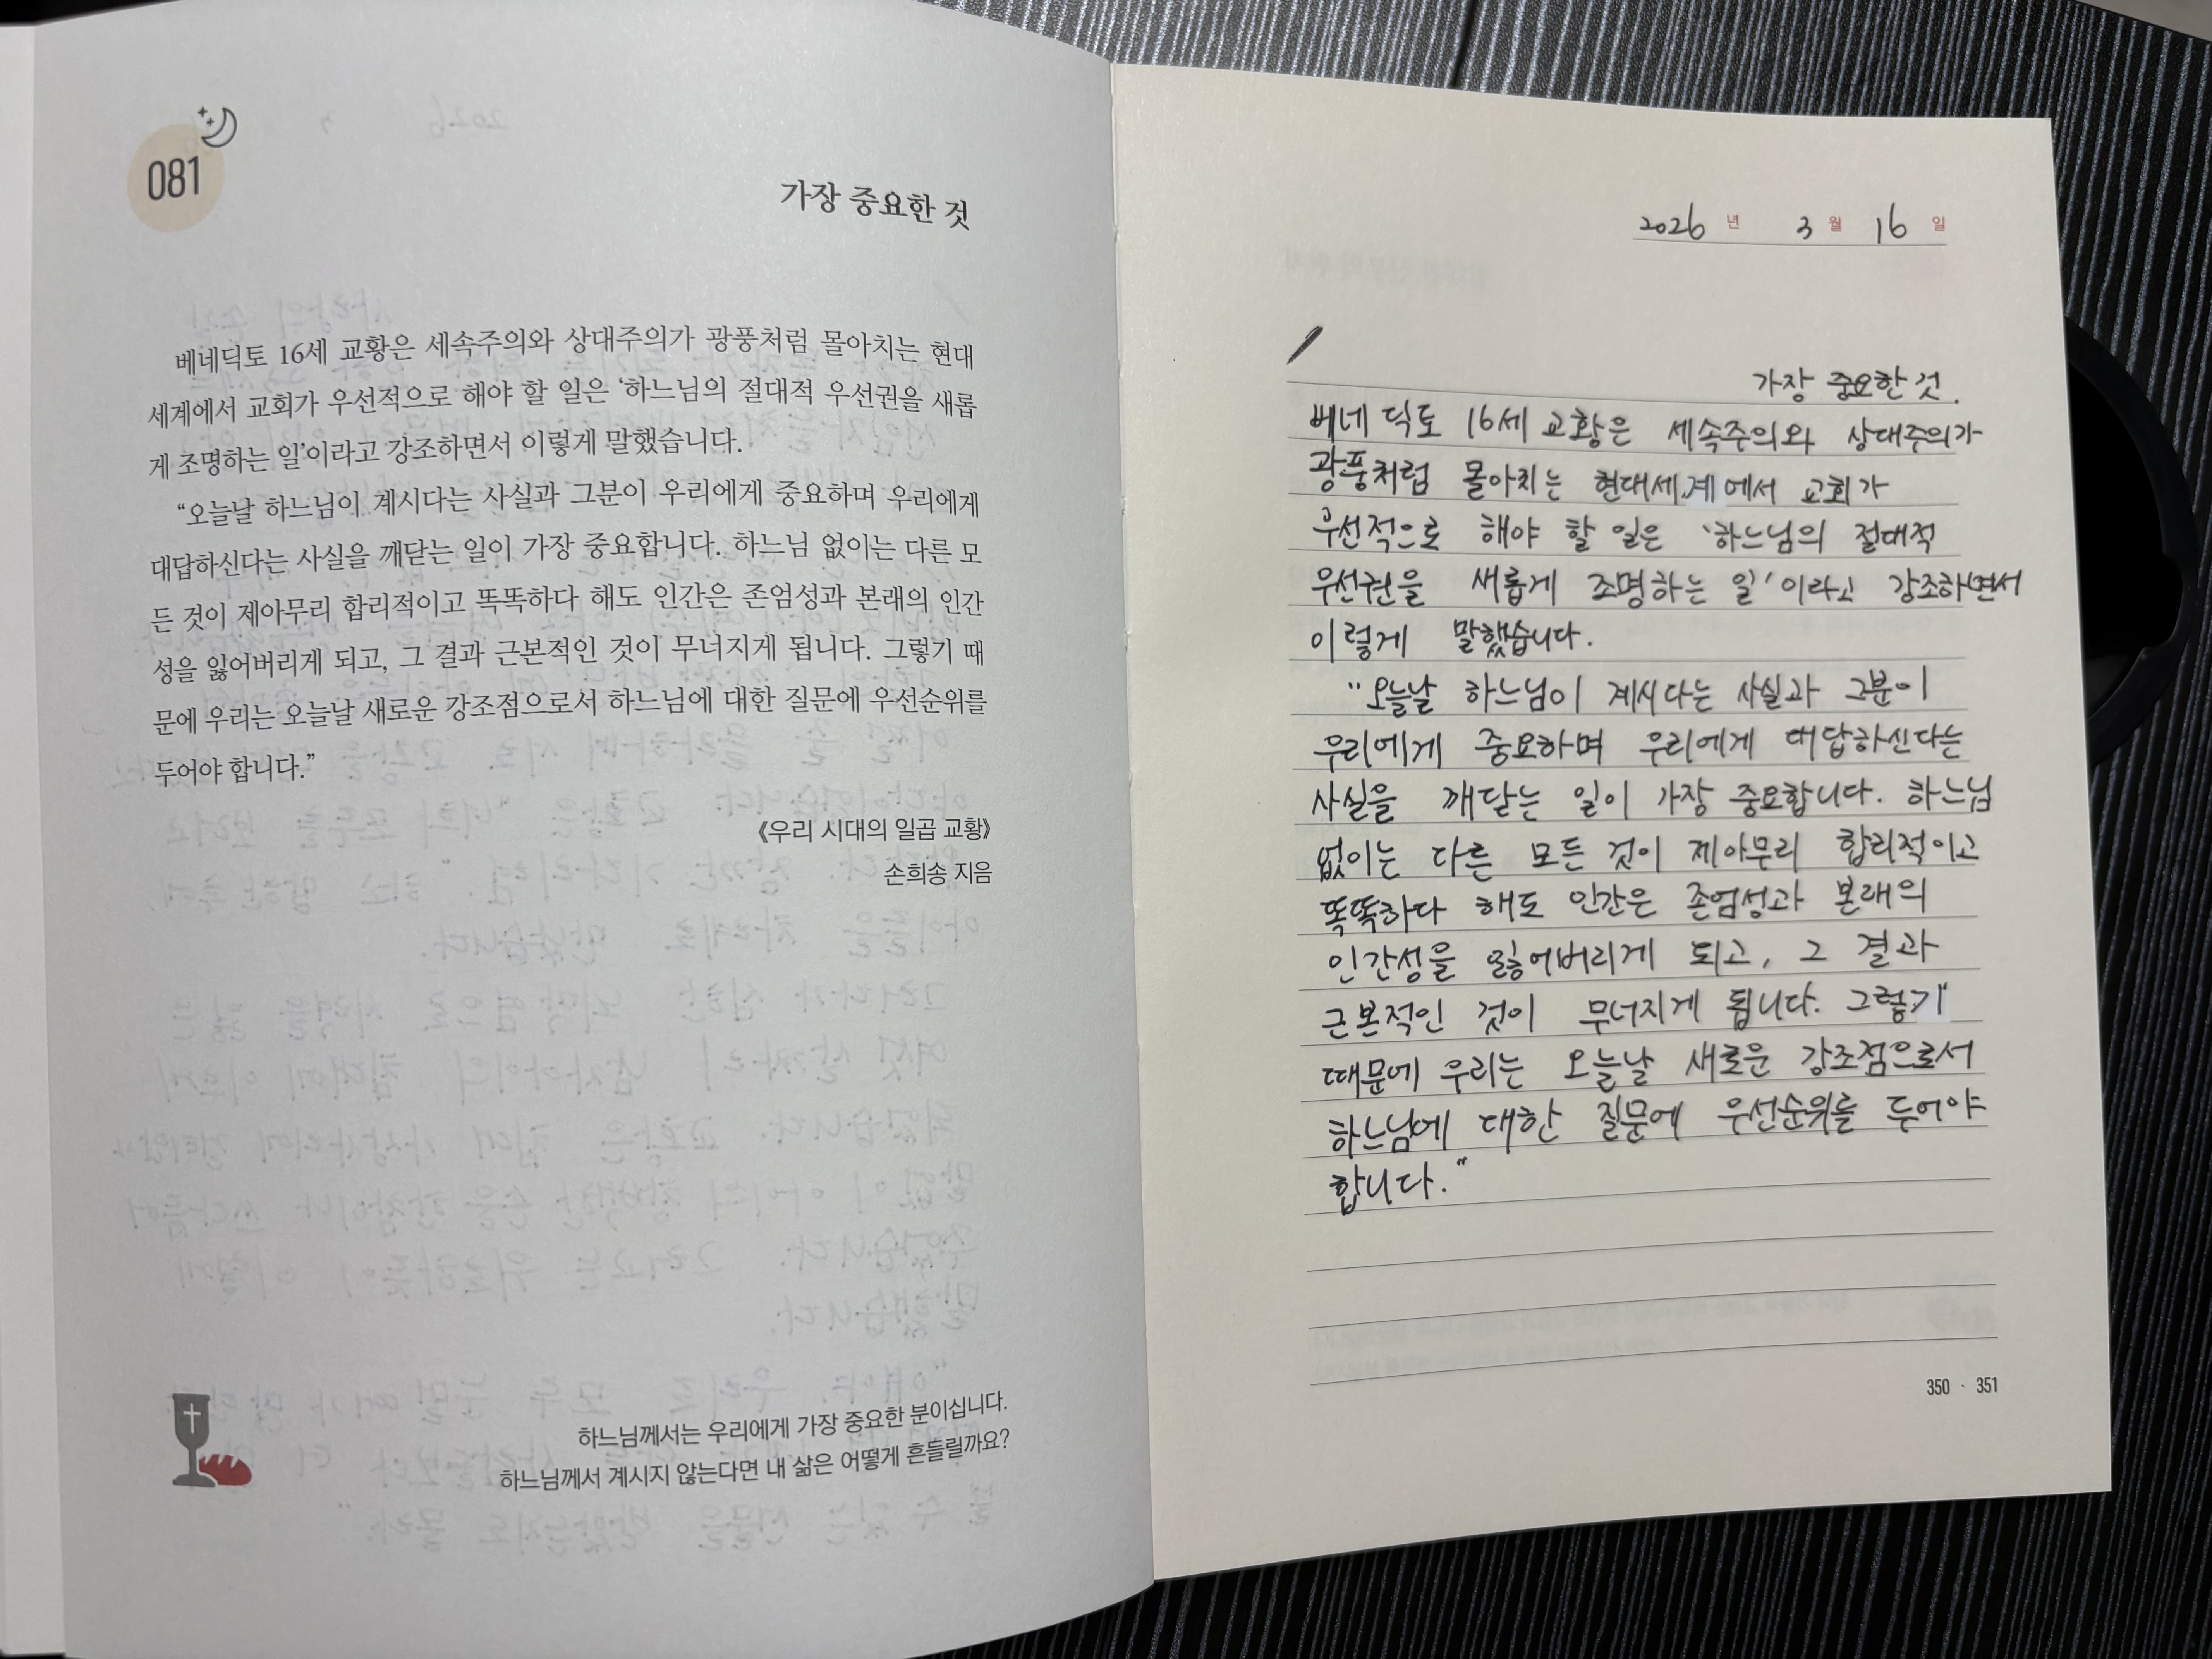 081
가장 중요한 것
베네딕토 16세 교황은 세속주의와 상대주의가 광풍처럼 몰아치는 현대
세계에서 교회가 우선적으로 해야 할 일은 ‘하느님의 절대적 우선권을 새롭
게 조명하는 일’이라고 강조하면서 이렇게 말했습니다.
“오늘날 하느님이 계시다는 사실과 그분이 우리에게 중요하며 우리에게
대답하신다는 사실을 깨닫는 일이 가장 중요합니다. 하느님 없이는 다른 모
든 것이 제아무리 합리적이고 똑똑하다 해도 인간은 존엄성과 본래의 인간
성을 잃어버리게 되고, 그 결과 근본적인 것이 무너지게 됩니다. 그렇기 때
문에 우리는 오늘날 새로운 강조점으로서 하느님에 대한 질문에 우선순위를
두어야 합니다.”
《우리 시대의 일곱 교황》
손희송 지음
하느님께서는 우리에게 가장 중요한 분이십니다.
하느님께서 계시지 않는다면 내 삶은 어떻게 흔들릴까요?
2026 년 3 월 16 일
가장 중요한 것.
베네딕토 16세 교황은 세속주의와 상대주의가
광풍처럼 몰아치는 현대세계에서 교회가
우선적으로 해야 할 일은 ‘하느님의 절대적
우선권을 새롭게 조명하는 일’이라고 강조하면서
이렇게 말했습니다.
“오늘날 하느님이 계시다는 사실과 그분이
우리에게 중요하며 우리에게 대답하신다는
사실을 깨닫는 일이 가장 중요합니다. 하느님
없이는 다른 모든 것이 제아무리 합리적이고
똑똑하다 해도 인간은 존엄성과 본래의
인간성을 잃어버리게 되고, 그 결과
근본적인 것이 무너지게 됩니다. 그렇기
때문에 우리는 오늘날 새로운 강조점으로서
하느님에 대한 질문에 우선순위를 두어야
합니다.”
350 · 351